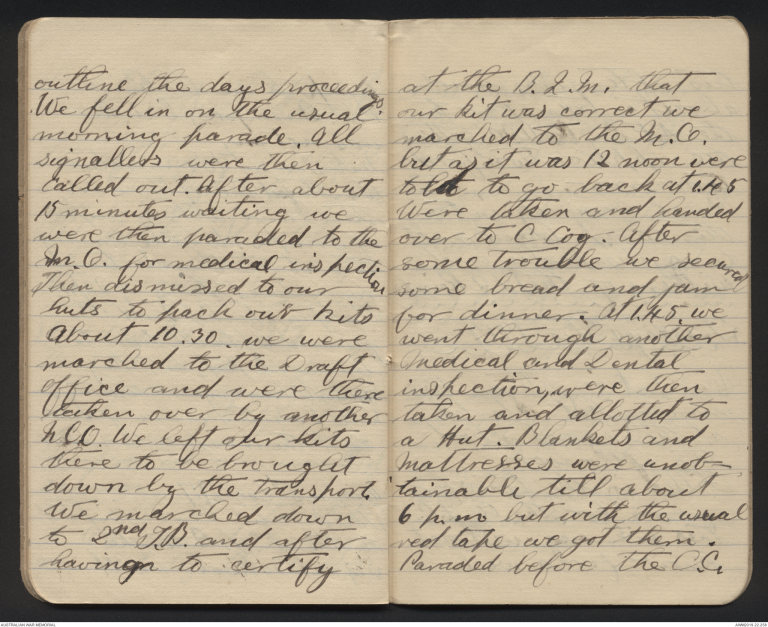 outline the days proceedings.
We fell in on the usual
morning parade. All
signallers were then
called out. After about
15 minutes waiting we
were then paraded to the
M.O. for medical inspection
Then dismissed to our
huts to pack our kits
About 10.30. we were
marched to the Draft
Office and were there
taken over by another
N.C.O. We left our kits
there to be brought
down by the transport.
We marched down
to 2nd T.B. and after
having to certify
at the B. I. M. that
our kit was correct we
marched to the M.O.
but as it was 12 noon were
told to go back at 1.45
Were taken and handed
over to C Coy. After
some trouble we secured
some bread and jam
for dinner. At 1.45. we
went through another
Medical and Dental
inspection, were then
taken and allotted to
a Hut. Blankets and
Mattresses were unob-
tainable till about
6 p.m. but with the usual
red tape we got them.
Paraded before the C.O.
AUSTRALIAN WAR MEMORIAL